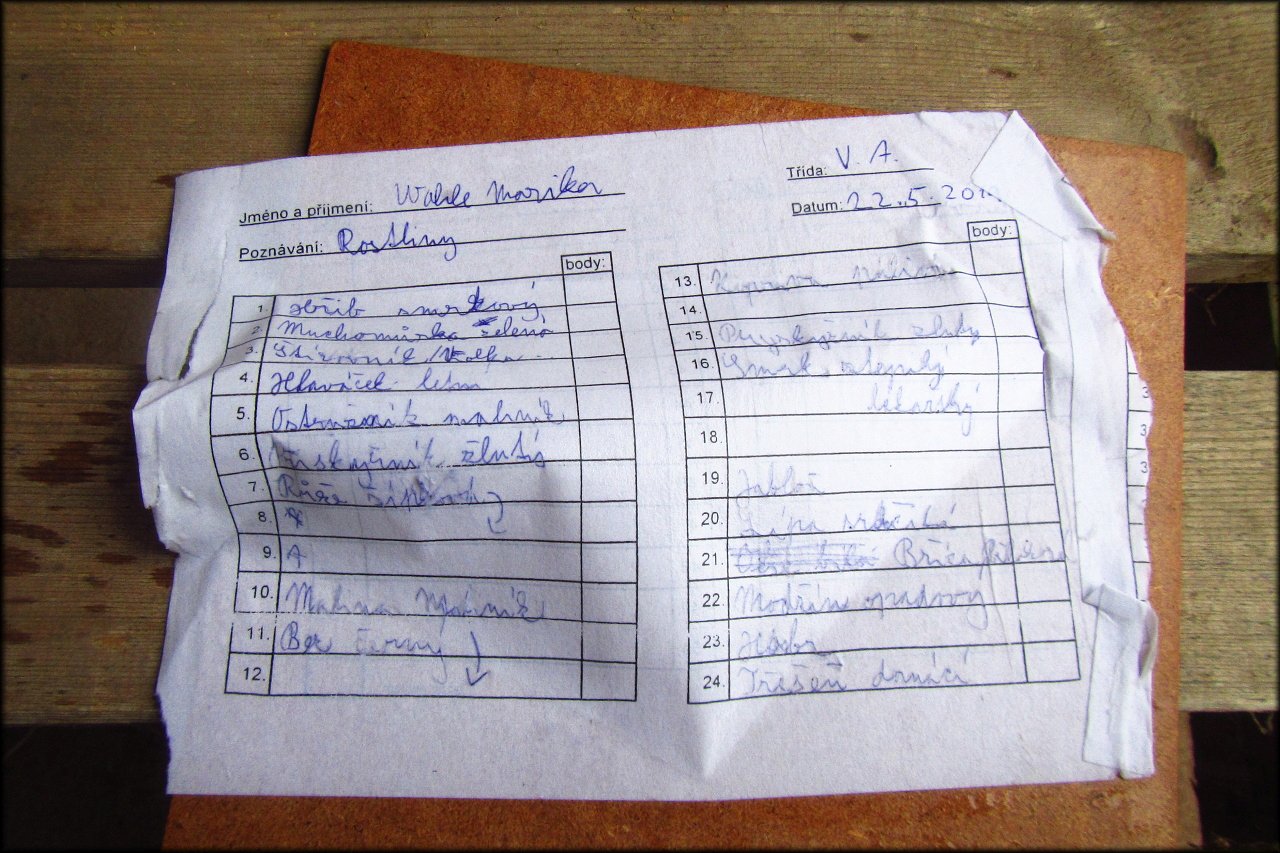 Jméno a příjmení: Wahle Marika
Třída: V. A.
Datum: 22.5.20
Poznávání: Rostliny
body:
1. Hřib smrkový
2. Muchomůrka zelená
3.
4. Hlaváček letní
5. Ostružiník maliník
6. Pryskyřník žlutý
7. Růže šípková
8.
9. A
10. Malina maliník
11. Bez černý
12.
body:
13. Kopřiva
14.
15. Pryskyřník žlutý
16. Smrk ztepilý
17. lékařský
18.
19. Jabloň
20. Lípa srdčitá
21. Bříza
22. Modřín opadavý
23. Habr
24. Třešeň domácí
3
3
3